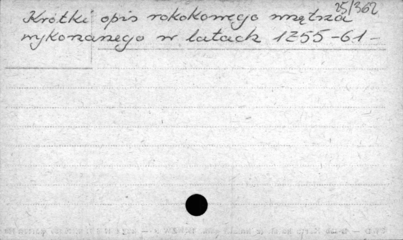 25/362
Krótki opis rokokowego wnętrza
wykonanego w latach 1755-61-